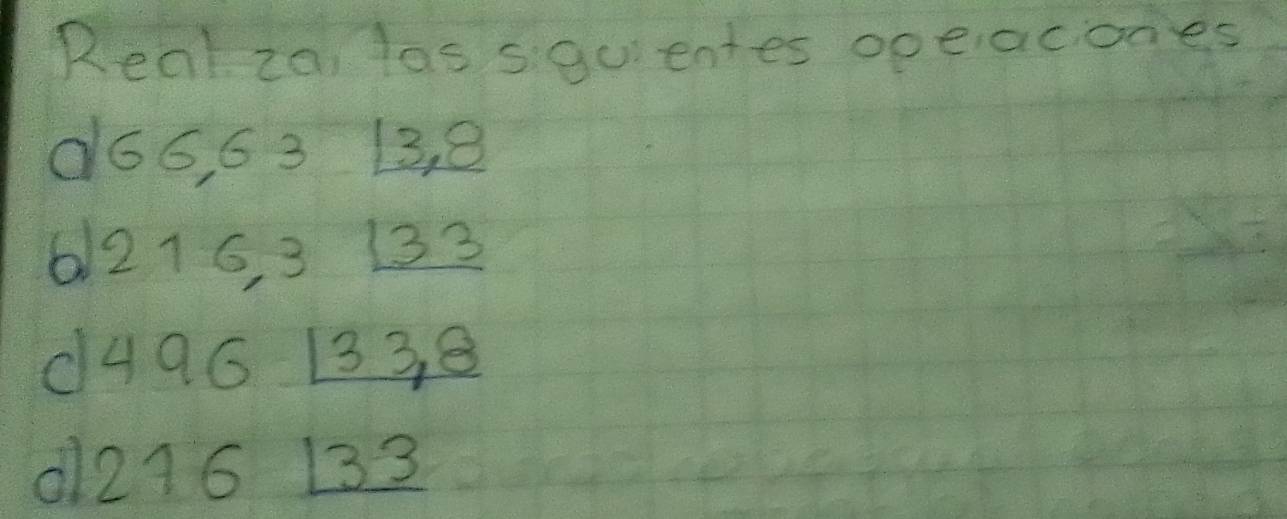 Realiza las siguientes operaciones
a) 66,63 | 3,8
b) 216,3 | 33
c) 496 | 33,8
d) 216 | 33